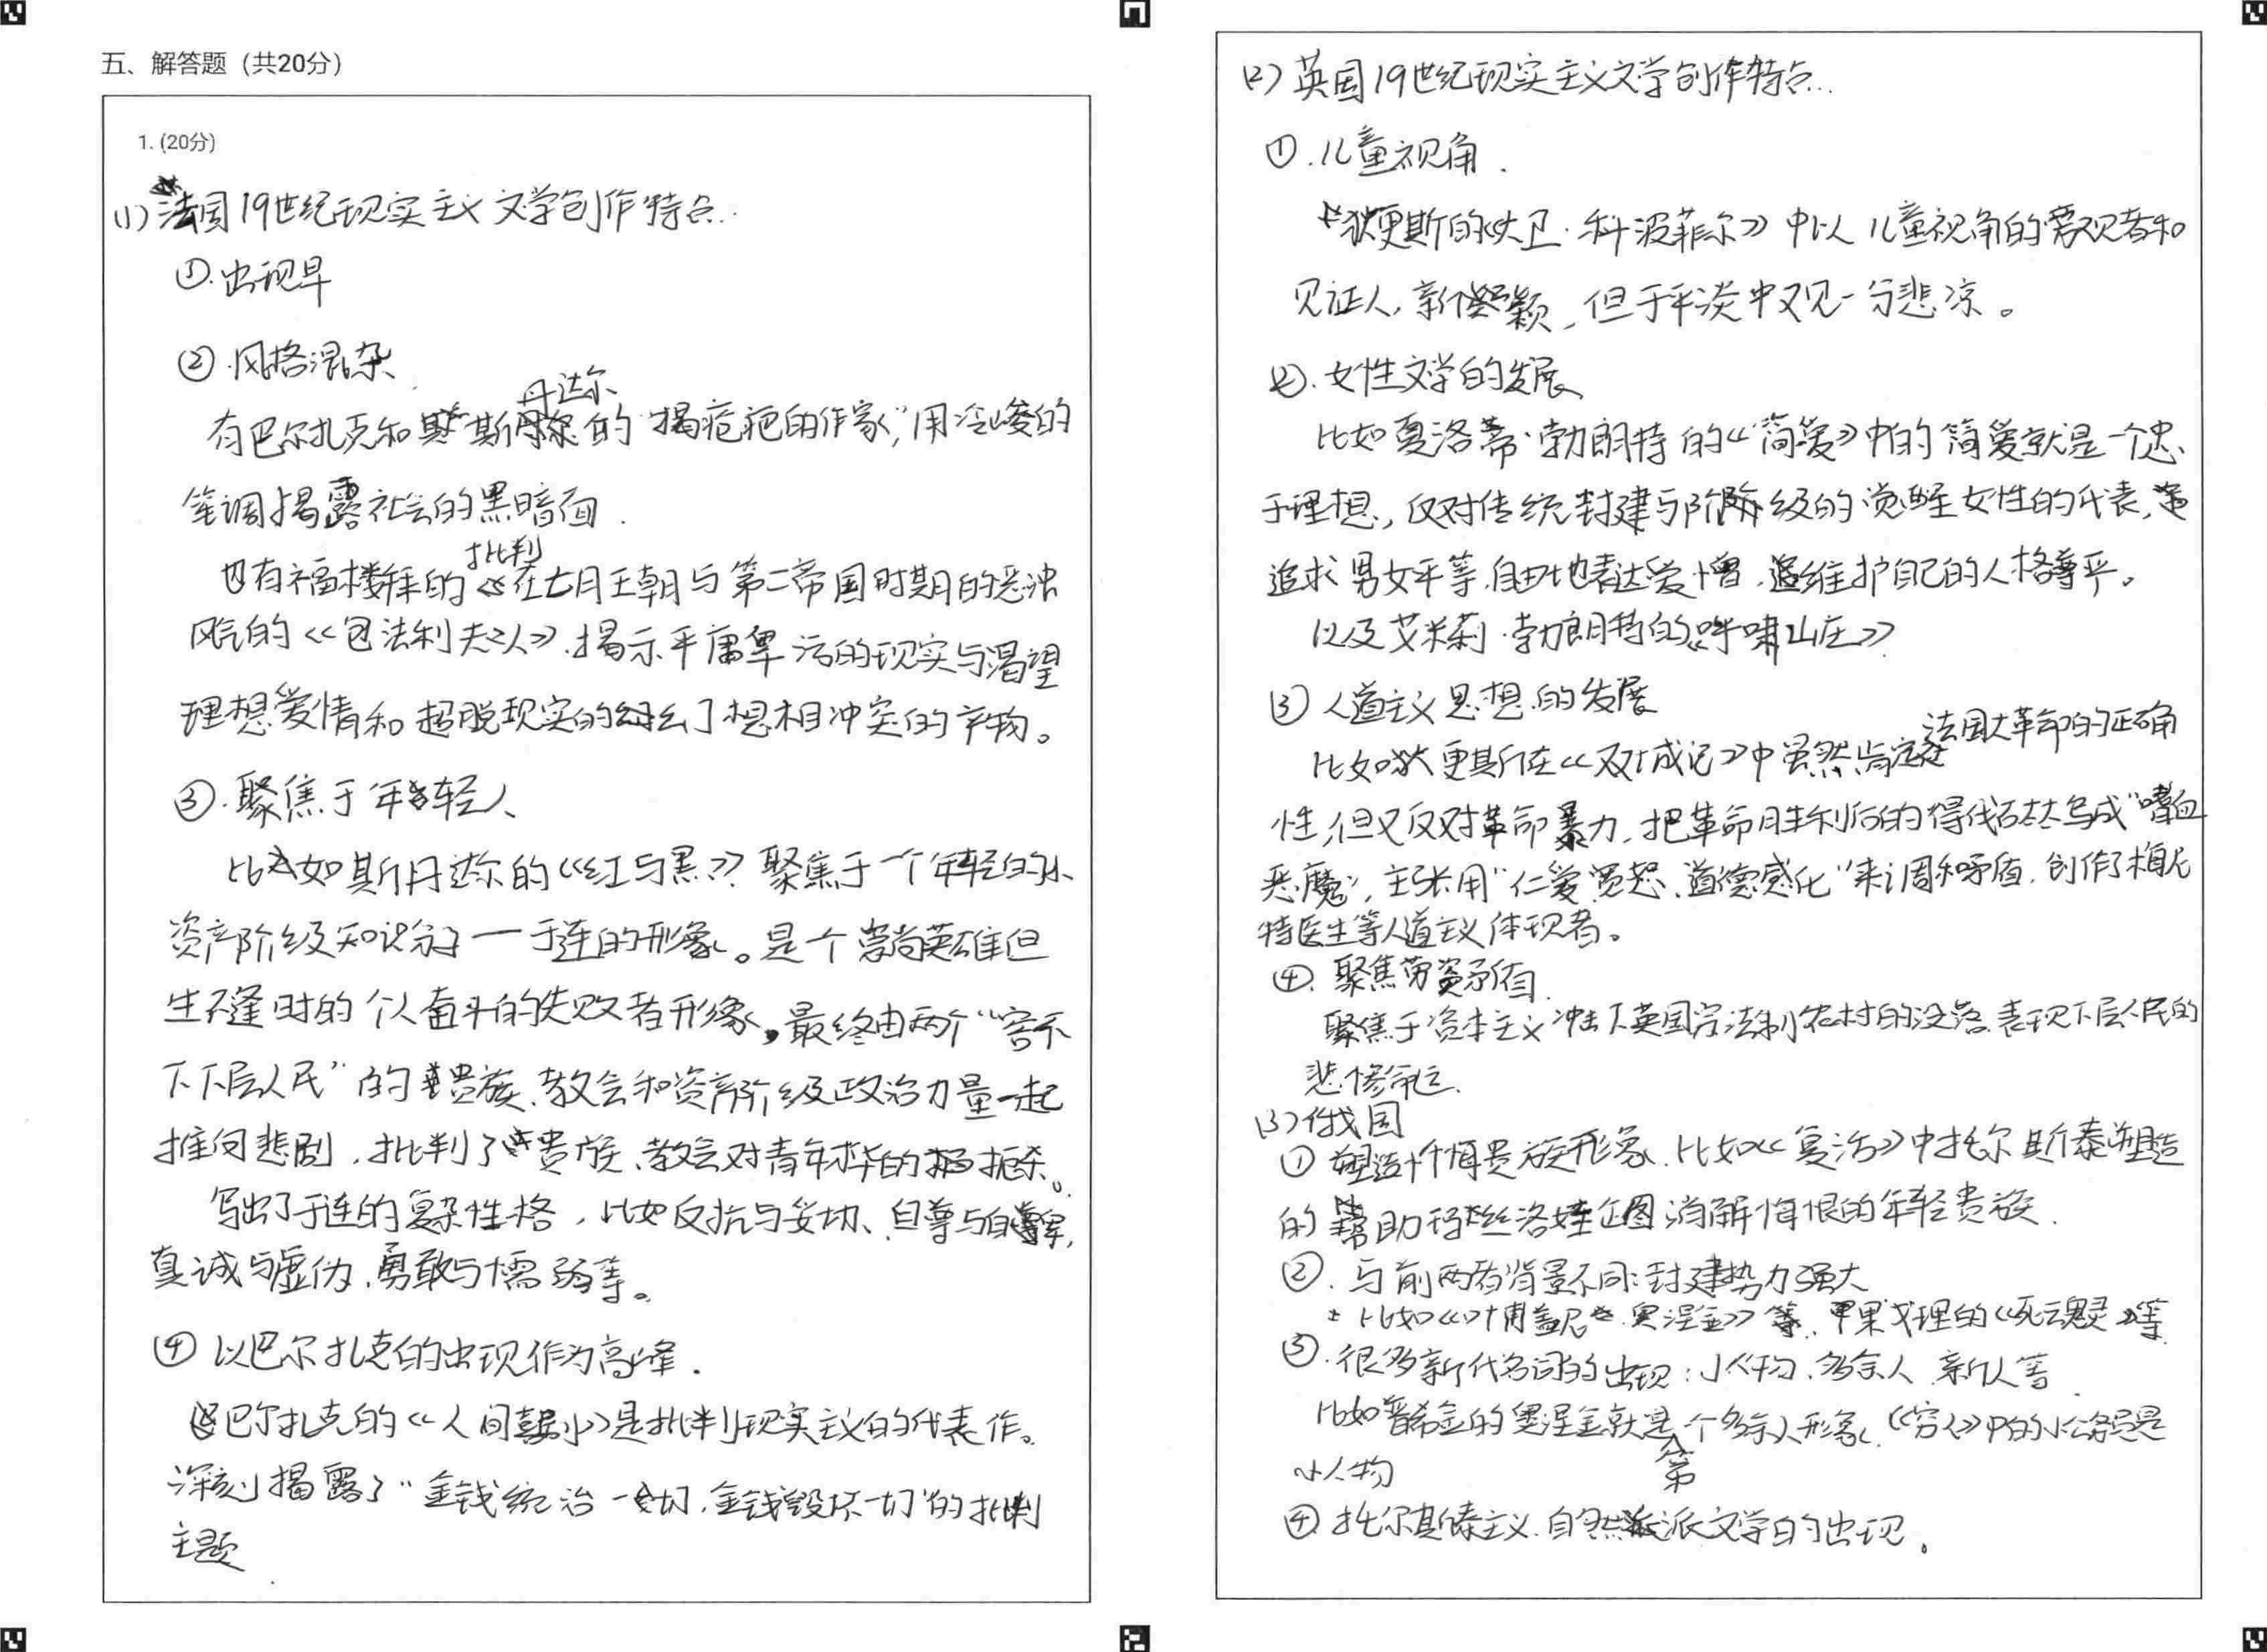 五、解答题（共20分）
1. (20分)
(1) 法国19世纪现实主义文学创作特点..
①.出现早
②.风格混杂
有巴尔扎克和斯丹达尔的"揭疮疤的作家",用冷峻的
笔调揭露社会的黑暗面.
也有福楼拜的批判在七月王朝与第二帝国时期的恶浊
风气的《包法利夫人》.揭示平庸卑污的现实与渴望
理想爱情和超脱现实的幻想相冲突的产物。
③.聚焦于年轻人、
比如斯丹达尔的《红与黑》聚焦于一个年轻的小
资产阶级知识分子一于连的形象。是个崇尚英雄但
生不逢时的个人奋斗的失败者形象,最终由两个"容不
下下层人民"的贵族、教会和资产阶级政治力量一起
推向悲剧,批判了贵族、教会对青年才华的扼杀。
写出了于连的复杂性格,比如反抗与妥协、自尊与自卑,
真诚与虚伪、勇敢与懦弱等。
④ 以巴尔扎克的出现作为高峰.
巴尔扎克的《人间喜剧》是批判现实主义的代表作。
深刻揭露了"金钱统治一切,金钱毁坏一切"的批判
主题
(2) 英国19世纪现实主义文学创作特点..
①.儿童视角.
狄更斯的《大卫·科波菲尔》中以儿童视角的旁观者和
见证人,新颖,但于平淡中又见一分悲凉。
②.女性文学的发展
比如夏洛蒂·勃朗特的《简爱》中的简爱就是一个忠
于理想,反对传统封建与阶级的觉醒女性的代表,
追求男女平等,自由地表达爱憎,维护自己的人格尊严。
以及艾米莉·勃朗特的《呼啸山庄》
③ 人道主义思想的发展
比如狄更斯在《双城记》中虽然肯定法国大革命的正确
性,但又反对革命暴力,把革命胜利后的得伐石太太写成"嗜血
恶魔",主张用"仁爱宽恕、道德感化"来调和矛盾,创作了梅尼
特医生等人道主义体现者。
④.聚焦劳资矛盾.
聚焦于资本主义冲击下英国宗法制农村的没落,表现下层人民的
悲惨命运.
(3) 俄国
① 塑造忏悔贵族形象.比如《复活》中托尔斯泰塑造
的帮助玛丝洛娃企图消解悔恨的年轻贵族.
②.与前两者背景不同:封建势力强大
比如《叶甫盖尼·奥涅金》等、果戈理的《死魂灵》等.
③.很多新代名词的出现:小人物、多余人、新人等.
比如普希金的奥涅金就是第一个多余人形象.《穷人》中的小公务员是
小人物
④ 托尔斯泰主义、自然派文学的出现。